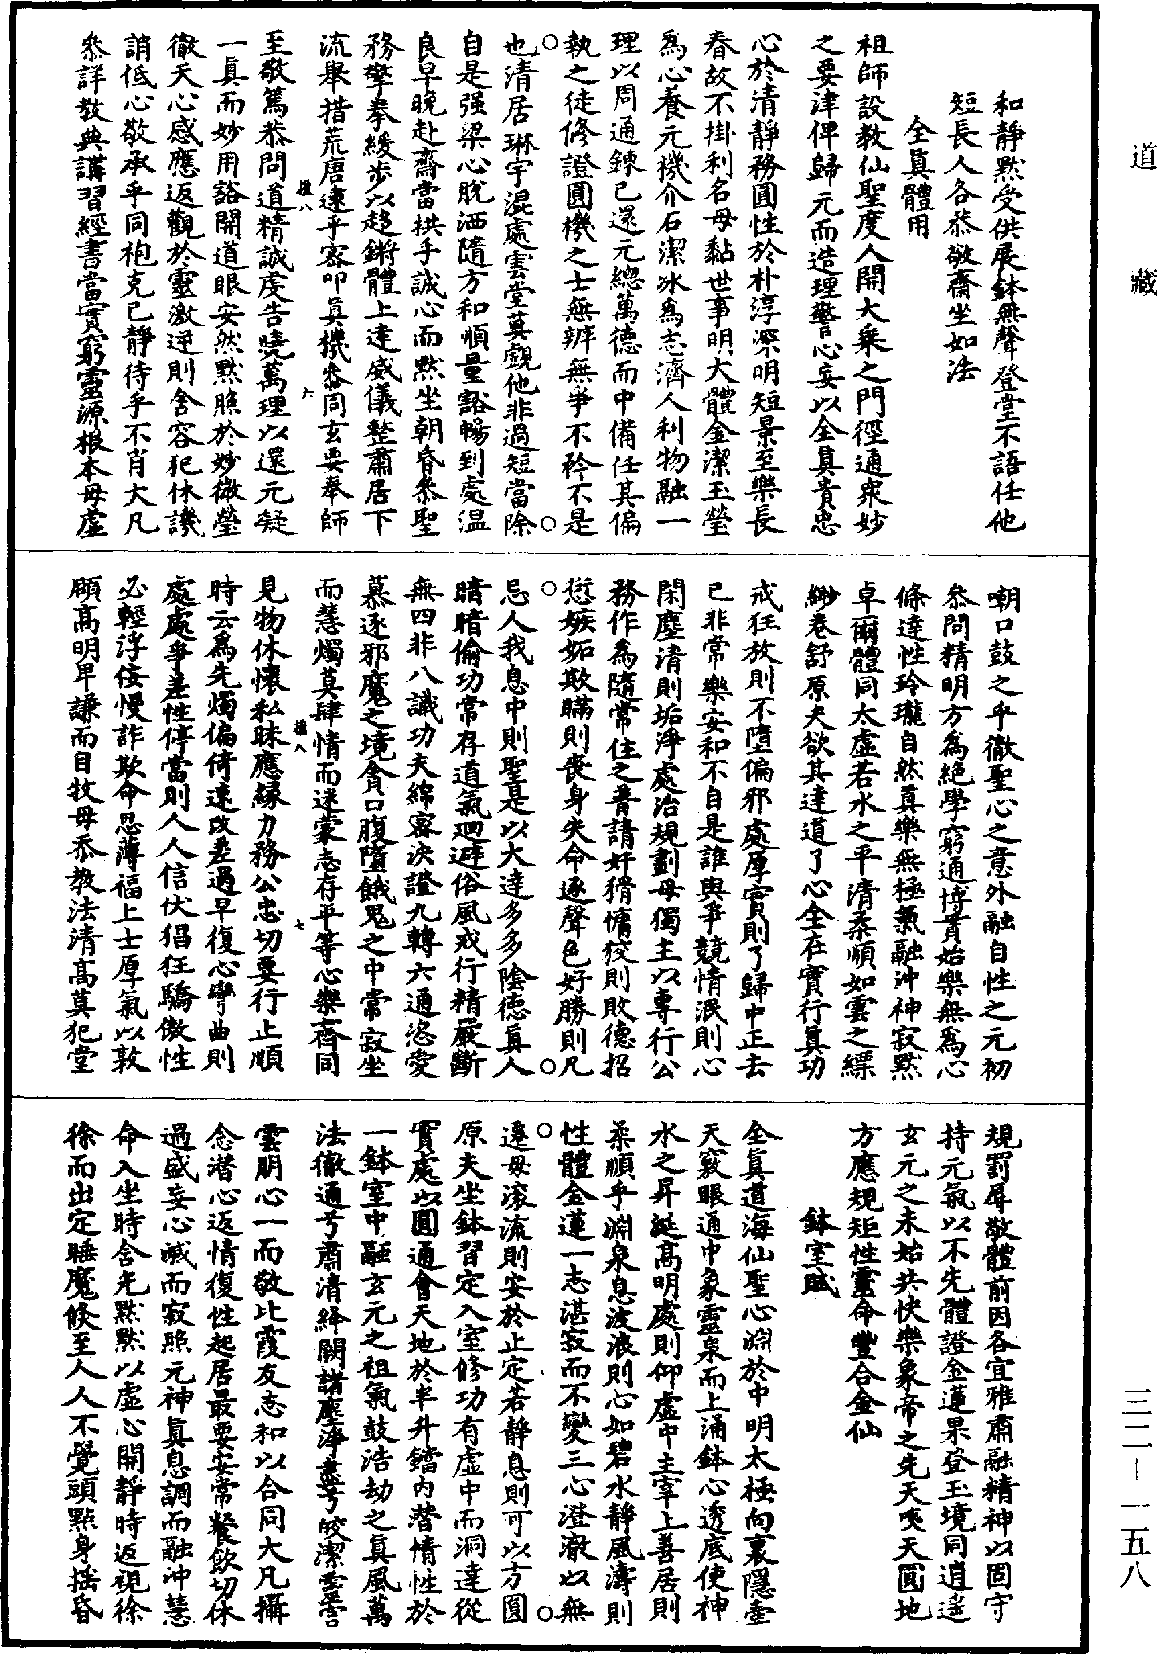 道藏
和靜默受供展鉢無聲登堂不語任他
短長人各恭敬齋坐如法
全真體用
祖師設教仙聖度人開大乘之門徑通衆妙
之要津俾歸元而造理警心妄以全真貴忠
心於清靜務圓性於朴淳深明短景至樂長
春故不掛利名毋黏世事明大體金潔玉瑩
爲心養元機介石潔冰爲志濟人利物融一
理以周通鍊已還元總萬德而中備任其偏
執之徒修證圓機之士無辨無爭不矜不是
也清居琳宇混處雲堂莫覷他非過短當除
自是强梁心脫洒隨方和順量豁暢到處温
良早晚赴齋當拱乎誠心而默坐朝昏叅聖
務擎拳緩步以趨鏘體上達威儀整肅居下
流舉措荒唐速乎密叩真機叅同玄要奉師
至敬篤恭問道精誠虔告曉萬理以還元凝
一真而妙用豁開道眼安然默照於妙微瑩
徹天心感應返觀於靈激逆則含容犯休譏
誚低心敬承乎同袍克己靜待乎不肖大凡
叅詳教典講習經書當實窮靈源根本毋虛
嘲口鼓之乎徹聖心之意外融自性之元初
叅問精明方爲絕學窮通博貫始樂無爲心
條達性玲瓏自然真樂無極氣融沖神寂默
卓爾體同太虛若水之平清柔順如雲之縹
緲卷舒原夫欲其達道了心全在實行真功
戒狂放則不墮偏邪處厚實則了歸中正去
已非常樂安和不自是誰與爭競情泯則心
閑塵清則垢淨處治規劃毋獨主以專行公
務作爲隨常住之普請奸猾慵狡則敗德招
愆嫉妬欺瞞則喪身失命逐聲色好勝則凡
忌人我息中則聖是以大達多多陰德真人
暗暗偷功常存道氣迴避俗風戒行精嚴斷
無四非八識功夫綿密決證九轉六通恣愛
慕逐邪魔之境貪口腹墮餓鬼之中常寂坐
而慧燭莫肆情而迷蒙志存平等心樂齊同
見物休懷私昧應緣力務公忠切要行止順
時云爲先燭偏倚速改差過早復心學曲則
處處爭差性停當則人人信伏猖狂驕傲性
必輕浮侫慢詐欺命忍薄福上士厚氣以敦
頤高明卑謙而目牧毋忝教法清高莫犯堂
規罰辱敬體前因各宜雅肅融精神以固守
持元氣以不先體證金蓮果登玉境同逍遥
玄元之未始共快樂象帝之先天噯天圓地
方應規矩性靈命豐合金仙
鉢室賦
全真道海仙聖心淵於中明太極向裏隱壷
天竅眼通中象靈泉而上涌鉢心透底使神
水之昇𨒂高明處則仰虛中主宰上善居則
柔順乎淵泉息波浪則心如碧水靜風濤則
性體金蓮一志湛寂而不變三心澄澈以無
遷毋滚流則安於止定若靜息則可以方圓
原夫坐鉢習定入室修功有虛中而洞達從
實處以圓通會天地於半升鐺内潜情性於
一鉢室中融玄元之祖氣鼓浩劫之真風萬
法徹通兮肅清絳闕諸塵淨盡兮皎潔靈宮
雲朋心一而敬比霞友志和以合同大凡攝
念潜心返情復性起居最要安常餐飲切休
過盛妄心滅而寂照元神真息調而融沖慧
命入坐時含光默默以虛心開靜時返視徐
徐而出定睡魔倐至人人不覺頭㸃身揺昏
三二一一五八